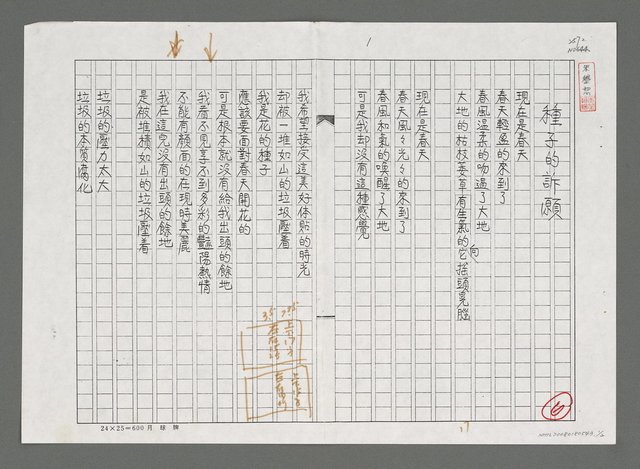 1
種子的訴願
現在是春天
春天輕盈的來到了
春風溫柔的吻過了大地
大地的枯枝萎草有生氣的向它搖頭晃腦
現在是春天
春天風々光々的來到了
春風和氣的喚醒了大地
可是我却沒有這種感覺
我希望接受這美好体貼的時光
却被一堆如山的垃圾壓着
我是花的種子
應該要面對春天開花的
可是根本就沒有給我出頭的餘地
我看不見享不到多彩的豔陽熱情
不能有顏面的在現時美麗
我在這兒沒有出頭的餘地
是被堆積如山的垃圾壓着
垃圾的壓力太大
垃圾的本質腐化
24×25=600
6